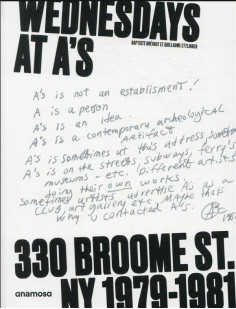 WEDNESDAYS
AT A'S
BAPTISTE BRÉVART ET GUILLAUME ETTLINGER
A'S is not an establisment!
A is a person
A'S is an idea
A's is a contemporary archeological
artifact
A's is sometimes at this address, sometimes
A's is on the streets, subways, ferry's
museums - etc. (different artists
doing their own works
sometimes artists advertise A's as a
club, art gallery etc. Maybe that's
why u contacted A's.
330 BROOME ST.
NY 1979-1981
anamosa